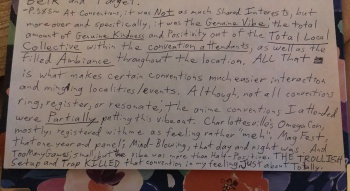 Belk and Target.
-P.S.- At Conventions, it was Not as much Shared Interests, but
moreover and specifically, it was the Genuine Vibe; the total
amount of Genuine Kindness and Positivity out of the Total Local
Collective within the convention attendants, as well as the
filled Ambiance throughout the location. ALL That
is what makes certain conventions much easier interaction
and mingling localities/events. Although, not all conventions
ring, register, or resonate; the anime conventions I attended
were Partially putting this vibe out. Charlotteville's OmegaCon,
mostly registered with me as feeling rather 'meh'. MagFest,
that one year and panel; Mad-Blowing, that day and night was. And
TooManyGames, small but the vibe was more than there for it; yes THE TROLLISH
Setup and Trap KILLED that convention in my feeling JUST about Totally.